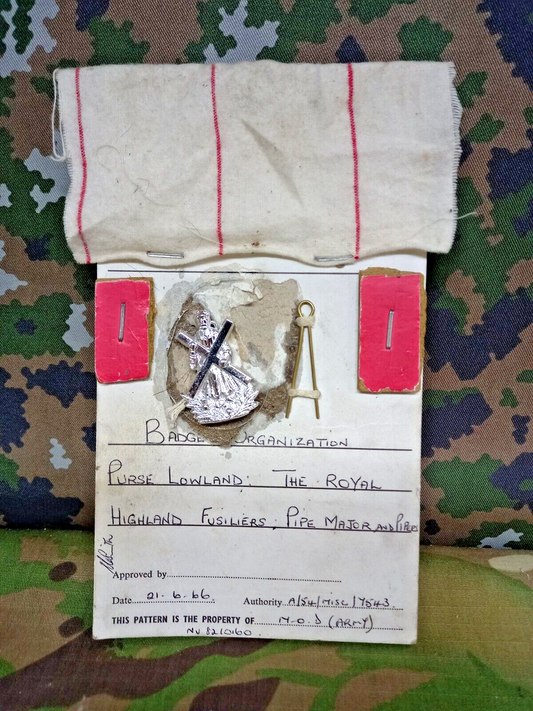 BADGE ORGANIZATION
PURSE LOWLAND: THE ROYAL
HIGHLAND FUSILIERS, PIPE MAJOR AND PIPERS
Approved by
Date 21-6-66 Authority A/54/MISC/7543
THIS PATTERN IS THE PROPERTY OF M.O.D (ARMY)